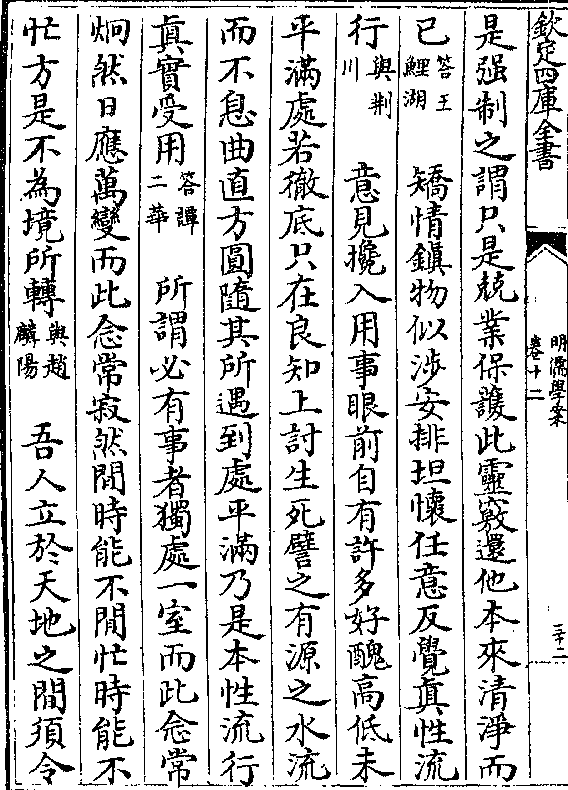 欽定四庫全書
明儒學案
卷十二
三十二
是强制之謂只是兢業保䕶此靈竅還他本來清淨而
已答王鯉湖 矯情鎮物似涉安排坦懷任意反覺真性流
行與荆川 意見攙入用事眼前自有許多好醜高低未
平滿處若徹底只在良知上討生死譬之有源之水流
而不息曲直方圓隨其所遇到處平滿乃是本性流行
真實受用答譚二華 所謂必有事者獨處一室而此念常
炯然日應萬變而此念常寂然閒時能不閒忙時能不
忙方是不為境所轉與趙麟陽 吾人立於天地之間須令